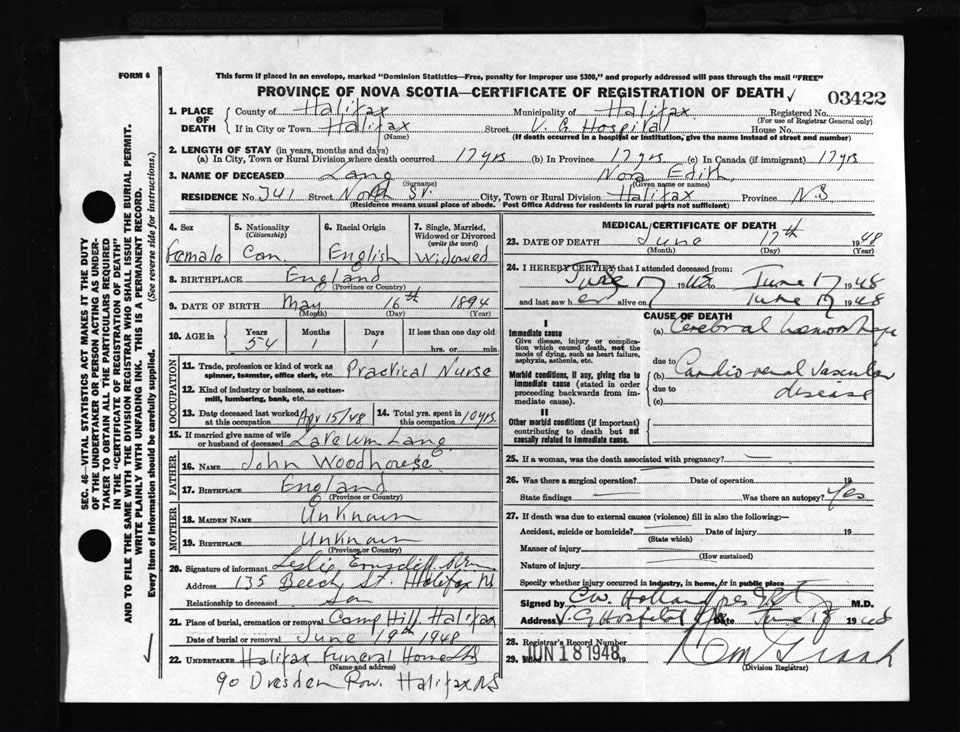 FORM 6
This form if placed in an envelope, marked "Dominion Statistics—Free, penalty for improper use $300," and properly addressed will pass through the mail "FREE"
PROVINCE OF NOVA SCOTIA—CERTIFICATE OF REGISTRATION OF DEATH
03422
1. PLACE OF DEATH { County of Halifax Municipality of Halifax Registered No.
(For use of Registrar General only)
If in City or Town Halifax Street V. G. Hospital House No.
(Name) (If death occurred in a hospital or institution, give the name instead of street and number)
2. LENGTH OF STAY (in years, months and days)
(a) In City, Town or Rural Division where death occurred 17 yrs (b) In Province 17 yrs (c) In Canada (if immigrant) 17 yrs
3. NAME OF DECEASED Lang Nora Edith
(Surname) (Given name or names)
RESIDENCE No. 341 Street North St. City, Town or Rural Division Halifax Province N.S
(Residence means usual place of abode. Post Office Address for residents in rural parts not sufficient)
4. Sex
Female
5. Nationality
(Citizenship)
Can.
6. Racial Origin
English
7. Single, Married, Widowed or Divorced
(write the word)
Widowed
8. BIRTHPLACE England
(Province or Country)
9. DATE OF BIRTH May 16th 1894
(Month) (Day) (Year)
10. AGE in { Years Months Days If less than one day old
54 1 1 hrs. or min.
OCCUPATION
11. Trade, profession or kind of work as spinner, teamster, office clerk, etc. Practical Nurse
12. Kind of industry or business, as cotton-mill, lumbering, bank, etc.
13. Date deceased last worked at this occupation Apr 15/48
14. Total yrs. spent in this occupation 10 yrs.
15. If married give name of wife or husband of deceased Late Wm Lang
FATHER
16. NAME John Woodhouse
17. BIRTHPLACE England
(Province or Country)
MOTHER
18. MAIDEN NAME Unknown
19. BIRTHPLACE Unknown
(Province or Country)
20. Signature of informant Leslie
Address 135 Beech St. Halifax NS
Relationship to deceased Son
21. Place of burial, cremation or removal Camp Hill Halifax
Date of burial or removal June 19th 1948
22. UNDERTAKER Halifax Funeral Home Ltd
(Name and address)
90 Dresden Row. Halifax NS
MEDICAL CERTIFICATE OF DEATH
23. DATE OF DEATH June 17th 1948
(Month) (Day) (Year)
24. I HEREBY CERTIFY that I attended deceased from:
June 17 1948 to June 17 1948
and last saw her alive on June 17 1948
CAUSE OF DEATH
I
Immediate cause
Give disease, injury or complication which caused death, not the mode of dying, such as heart failure, asphyxia, asthenia, etc.
(a) Cerebral hemorrhage
due to
Morbid conditions, if any, giving rise to immediate cause (stated in order proceeding backwards from immediate cause).
(b) Cardio-renal vascular
due to disease
(c)
II
Other morbid conditions (if important) contributing to death but not causally related to immediate cause.
25. If a woman, was the death associated with pregnancy?
26. Was there a surgical operation? Date of operation 19
State findings Was there an autopsy? Yes
27. If death was due to external causes (violence) fill in also the following:—
Accident, suicide or homicide? Date of injury 19
(State which)
Manner of injury
(How sustained)
Nature of injury
Specify whether injury occurred in industry, in home, or in public place
Signed by C.W. Holland M.D.
Address V. G. Hospital Date June 18 1948
28. Registrar's Record Number
29. Filed JUN 18 1948 19
(Division Registrar)
SEC. 46—VITAL STATISTICS ACT MAKES IT THE DUTY
OF THE UNDERTAKER OR PERSON ACTING AS UNDER-
TAKER TO OBTAIN ALL THE PARTICULARS REQUIRED
IN THE "CERTIFICATE OF REGISTRATION OF DEATH"
AND TO FILE THE SAME WITH THE DIVISION REGISTRAR WHO SHALL ISSUE THE BURIAL PERMIT.
WRITE PLAINLY WITH UNFADING INK. THIS IS A PERMANENT RECORD.
Every item of information should be carefully supplied. (See reverse side for instructions.)